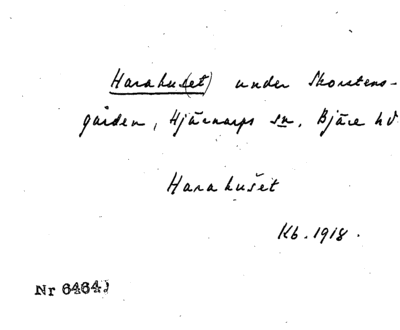 Harahus(et) under Skorstens-
gården, Hjärnarps sn, Bjäre hd.
Harahuset
Kb. 1918.
Nr 6464